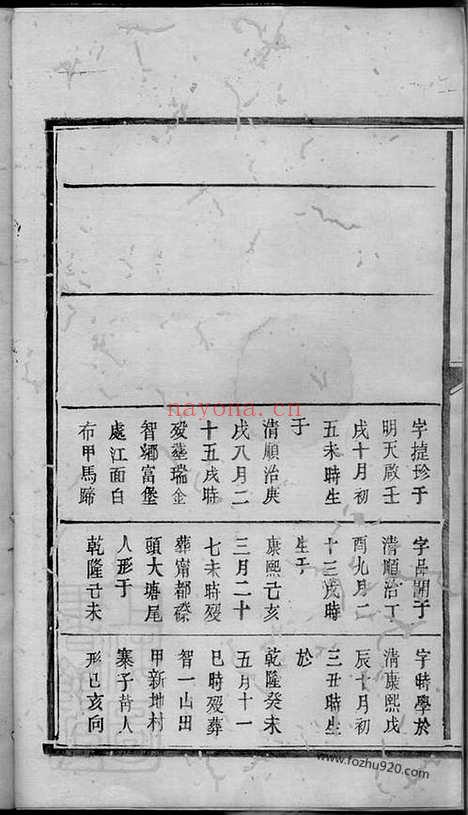 字捷珍于
明天啟壬
戌十月初
五未時生
于
清順治庚
戌八月二
十五戌時
歿塟瑞金
智鄉富堡
處江面白
布甲馬蹄
字品開于
清順治丁
酉九月二
十三戌時
生于
康熙己亥
三月二十
七未時歿
葬甯都磜
頭大塘尾
人形于
乾隆己未
字時學於
清康熙戊
辰十月初
三丑時生
於
乾隆癸未
五月十一
巳時歿葬
智一山田
甲新地村
寨子崗人
形巳亥向
nayona.cn
www.fozhu920.com